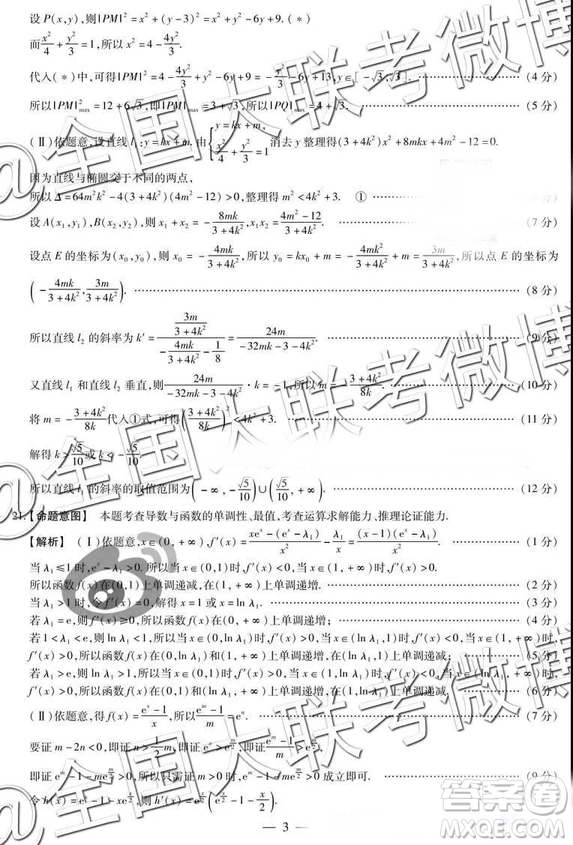 设P(x,y),则|PM|²=x²+(y-3)²=x²+y²-6y+9.(*)
而x²/4+y²/3=1,所以x²=4-4y²/3.
代入(*)中,可得|PM|²=4-4y²/3+y²-6y+9=-y²/3-6y+13,y∈[-√3,√3]. (4分)
所以|PM|²max=12+6√3,即|PM|max=3+√3,所以|PQ|max=4+√3. (5分)
(Ⅱ)依题意,设直线l₁:y=kx+m,由{y=kx+m, x²/4+y²/3=1 消去y整理得(3+4k²)x²+8mkx+4m²-12=0.
因为直线与椭圆交于不同的两点,
所以Δ=64m²k²-4(3+4k²)(4m²-12)>0,整理得m²<4k²+3. ①
设A(x₁,y₁),B(x₂,y₂),则x₁+x₂=-8mk/(3+4k²),x₁x₂=(4m²-12)/(3+4k²). (7分)
设点E的坐标为(x₀,y₀),则x₀=-4mk/(3+4k²),所以y₀=kx₀+m=-4mk²/(3+4k²)+m=3m/(3+4k²),所以点E的坐标为
(-4mk/(3+4k²),3m/(3+4k²)). (8分)
所以直线l₂的斜率为k′=(3m/(3+4k²))/(-4mk/(3+4k²)-1/8)=24m/(-32mk-3-4k²). (9分)
又直线l₁和直线l₂垂直,则24m/(-32mk-3-4k²)·k=-1,所以m=-(3+4k²)/8k. (10分)
将m=-(3+4k²)/8k代入①式,可得((3+4k²)/8k)²<4k²+3. (11分)
解得k>√5/10或k<-√5/10.
所以直线l₁的斜率的取值范围为(-∞,-√5/10)∪(√5/10,+∞). (12分)
21.【命题意图】 本题考查导数与函数的单调性、最值,考查运算求解能力、推理论证能力.
【解析】 (Ⅰ)依题意,x∈(0,+∞),f′(x)=(xeˣ-(eˣ-λ₁))/x²-λ₁/x=(x-1)(eˣ-λ₁)/x². (1分)
当λ₁≤1时,eˣ-λ₁>0,
所以函数f(x)在(0,1)上单调递减,在(1,+∞)上单调递增. (2分)
当λ₁>1时,令f′(x)=0,解得x=1或x=lnλ₁. (3分)
若λ₁=e,则f′(x)≥0,所以函数f(x)在(0,+∞)上单调递增; (4分)
若1<λ₁<e,则lnλ₁<1,所以当x∈(0,lnλ₁)时,f′(x)>0,当x∈(lnλ₁,1)时,f′(x)<0,当x∈(1,+∞)时,
f′(x)>0,所以函数f(x)在(0,lnλ₁)和(1,+∞)上单调递增,在(lnλ₁,1)上单调递减; (5分)
若λ₁>e,则lnλ₁>1,所以当x∈(0,1)时,f′(x)>0,当x∈(1,lnλ₁)时,f′(x)<0,当x∈(lnλ₁,+∞)时,
f′(x)>0,所以函数f(x)在(0,1)和(lnλ₁,+∞)上单调递增,在(1,lnλ₁)上单调递减.
(Ⅱ)依题意,得f(x)=(eˣ-1)/x,所以(eᵐ-1)/m=eⁿ. (7分)
要证m-2n<0,即证n>½m,即证eⁿ>e^(m/2),即证(eᵐ-1)/m>e^(m/2).
即证eᵐ-1>me^(m/2),所以只需证m>0时,eᵐ-1-me^(m/2)>0成立即可. (9分)
令h(x)=eˣ-1-xe^(x/2),则h′(x)=e^(x/2)(e^(x/2)-1-x/2).
— 3 —
@全国大联考微博
@全国大联考微博
@全国大联考微博
答案圈
MXQE.COM